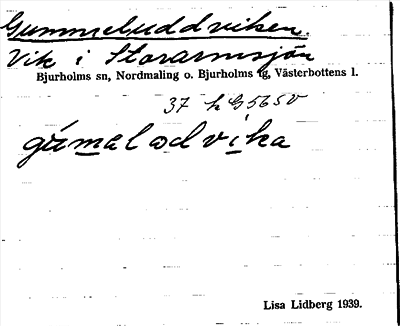 Gummeluddviken.
Vik i Storarmsjön
Bjurholms sn, Nordmaling o. Bjurholms tg, Västerbottens l.
37 h G 5650
gúmalədvika
Lisa Lidberg 1939.